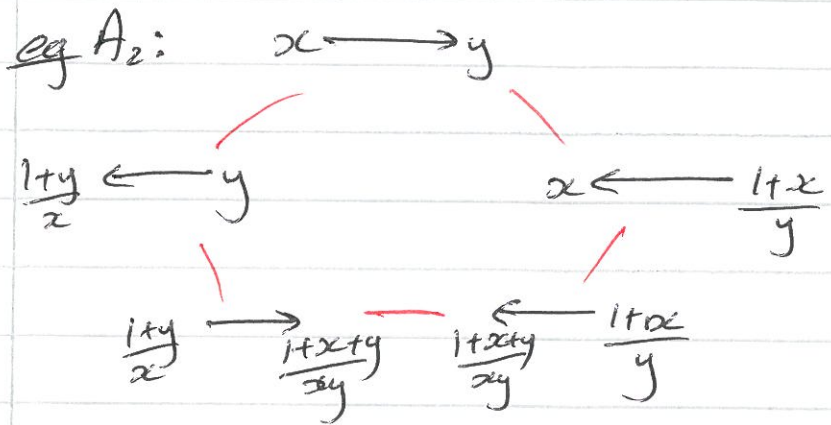 eg A₂: x ⟶ y
(1+y)/x ⟵ y x ⟵ (1+x)/y
(1+y)/x ⟶ (1+x+y)/xy (1+x+y)/xy ⟵ (1+x)/y